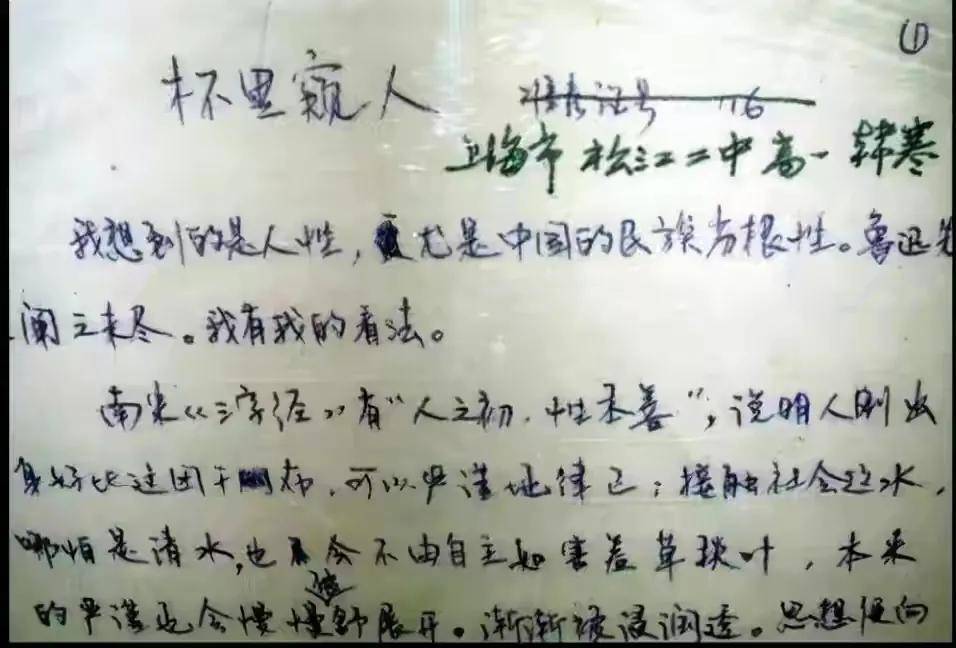 ①
杯里窥人
准考证号 16
上海市 松江二中 高一 韩寒
我想到的是人性,尤是中国的民族劣根性。鲁迅先
阐之未尽。我有我的看法。
南宋《三字经》有“人之初,性本善”,说明人刚出
身好比这团干布,可以严谨地律己;接触社会这水,
哪怕是清水,也会不由自主如害羞草掞叶,本来
的严谨也会慢慢被舒展开。渐渐被浸润透。思想便向